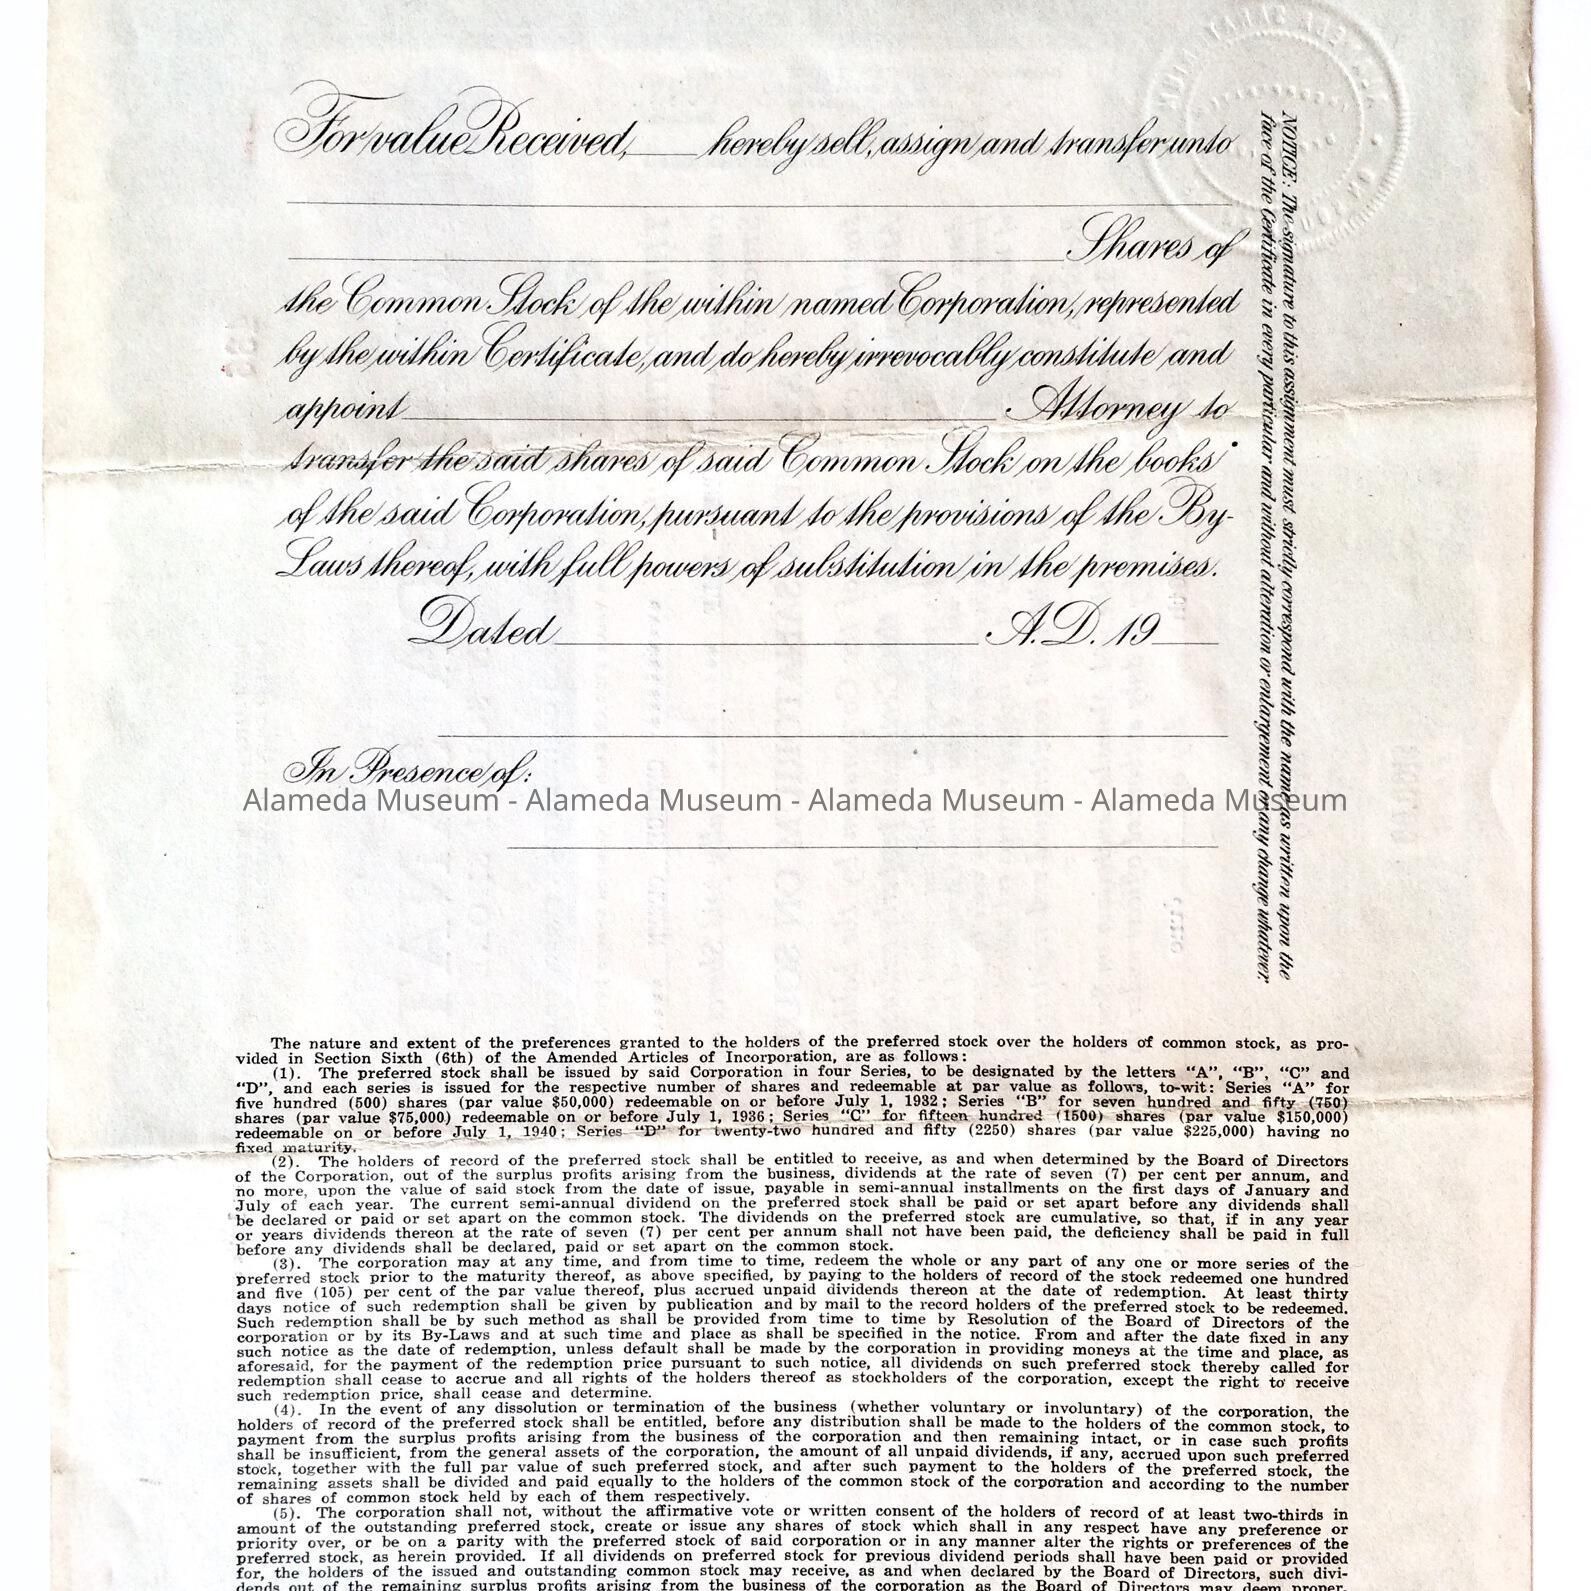 For value Received, hereby sell, assign and transfer unto
Shares of
the Common Stock of the within named Corporation, represented
by the within Certificate, and do hereby irrevocably constitute and
appoint Attorney to
transfer the said shares of said Common Stock on the books
of the said Corporation, pursuant to the provisions of the By-
Laws thereof, with full powers of substitution in the premises.
Dated A.D. 19
In Presence of:
Alameda Museum - Alameda Museum - Alameda Museum - Alameda Museum
NOTICE: The signature to this assignment must strictly correspond with the name as written upon the
face of the Certificate in every particular and without alteration or enlargement or any change whatever.
The nature and extent of the preferences granted to the holders of the preferred stock over the holders of common stock, as pro-
vided in Section Sixth (6th) of the Amended Articles of Incorporation, are as follows:
(1). The preferred stock shall be issued by said Corporation in four Series, to be designated by the letters "A", "B", "C" and
"D", and each series is issued for the respective number of shares and redeemable at par value as follows, to-wit: Series "A" for
five hundred (500) shares (par value $50,000) redeemable on or before July 1, 1932; Series "B" for seven hundred and fifty (750)
shares (par value $75,000) redeemable on or before July 1, 1936; Series "C" for fifteen hundred (1500) shares (par value $150,000)
redeemable on or before July 1, 1940; Series "D" for twenty-two hundred and fifty (2250) shares (par value $225,000) having no
fixed maturity.
(2). The holders of record of the preferred stock shall be entitled to receive, as and when determined by the Board of Directors
of the Corporation, out of the surplus profits arising from the business, dividends at the rate of seven (7) per cent per annum, and
no more, upon the value of said stock from the date of issue, payable in semi-annual installments on the first days of January and
July of each year. The current semi-annual dividend on the preferred stock shall be paid or set apart before any dividends shall
be declared or paid or set apart on the common stock. The dividends on the preferred stock are cumulative, so that, if in any year
or years dividends thereon at the rate of seven (7) per cent per annum shall not have been paid, the deficiency shall be paid in full
before any dividends shall be declared, paid or set apart on the common stock.
(3). The corporation may at any time, and from time to time, redeem the whole or any part of any one or more series of the
preferred stock prior to the maturity thereof, as above specified, by paying to the holders of record of the stock redeemed one hundred
and five (105) per cent of the par value thereof, plus accrued unpaid dividends thereon at the date of redemption. At least thirty
days notice of such redemption shall be given by publication and by mail to the record holders of the preferred stock to be redeemed.
Such redemption shall be by such method as shall be provided from time to time by Resolution of the Board of Directors of the
corporation or by its By-Laws and at such time and place as shall be specified in the notice. From and after the date fixed in any
such notice as the date of redemption, unless default shall be made by the corporation in providing moneys at the time and place, as
aforesaid, for the payment of the redemption price pursuant to such notice, all dividends on such preferred stock thereby called for
redemption shall cease to accrue and all rights of the holders thereof as stockholders of the corporation, except the right to receive
such redemption price, shall cease and determine.
(4). In the event of any dissolution or termination of the business (whether voluntary or involuntary) of the corporation, the
holders of record of the preferred stock shall be entitled, before any distribution shall be made to the holders of the common stock, to
payment from the surplus profits arising from the business of the corporation and then remaining intact, or in case such profits
shall be insufficient, from the general assets of the corporation, the amount of all unpaid dividends, if any, accrued upon such preferred
stock, together with the full par value of such preferred stock, and after such payment to the holders of the preferred stock, the
remaining assets shall be divided and paid equally to the holders of the common stock of the corporation and according to the number
of shares of common stock held by each of them respectively.
(5). The corporation shall not, without the affirmative vote or written consent of the holders of record of at least two-thirds in
amount of the outstanding preferred stock, create or issue any shares of stock which shall in any respect have any preference or
priority over, or be on a parity with the preferred stock of said corporation or in any manner alter the rights or preferences of the
preferred stock, as herein provided. If all dividends on preferred stock for previous dividend periods shall have been paid or provided
for, the holders of the issued and outstanding common stock may receive, as and when declared by the Board of Directors, such divi-
dends out of the remaining surplus profits arising from the business of the corporation as the Board of Directors may deem proper.